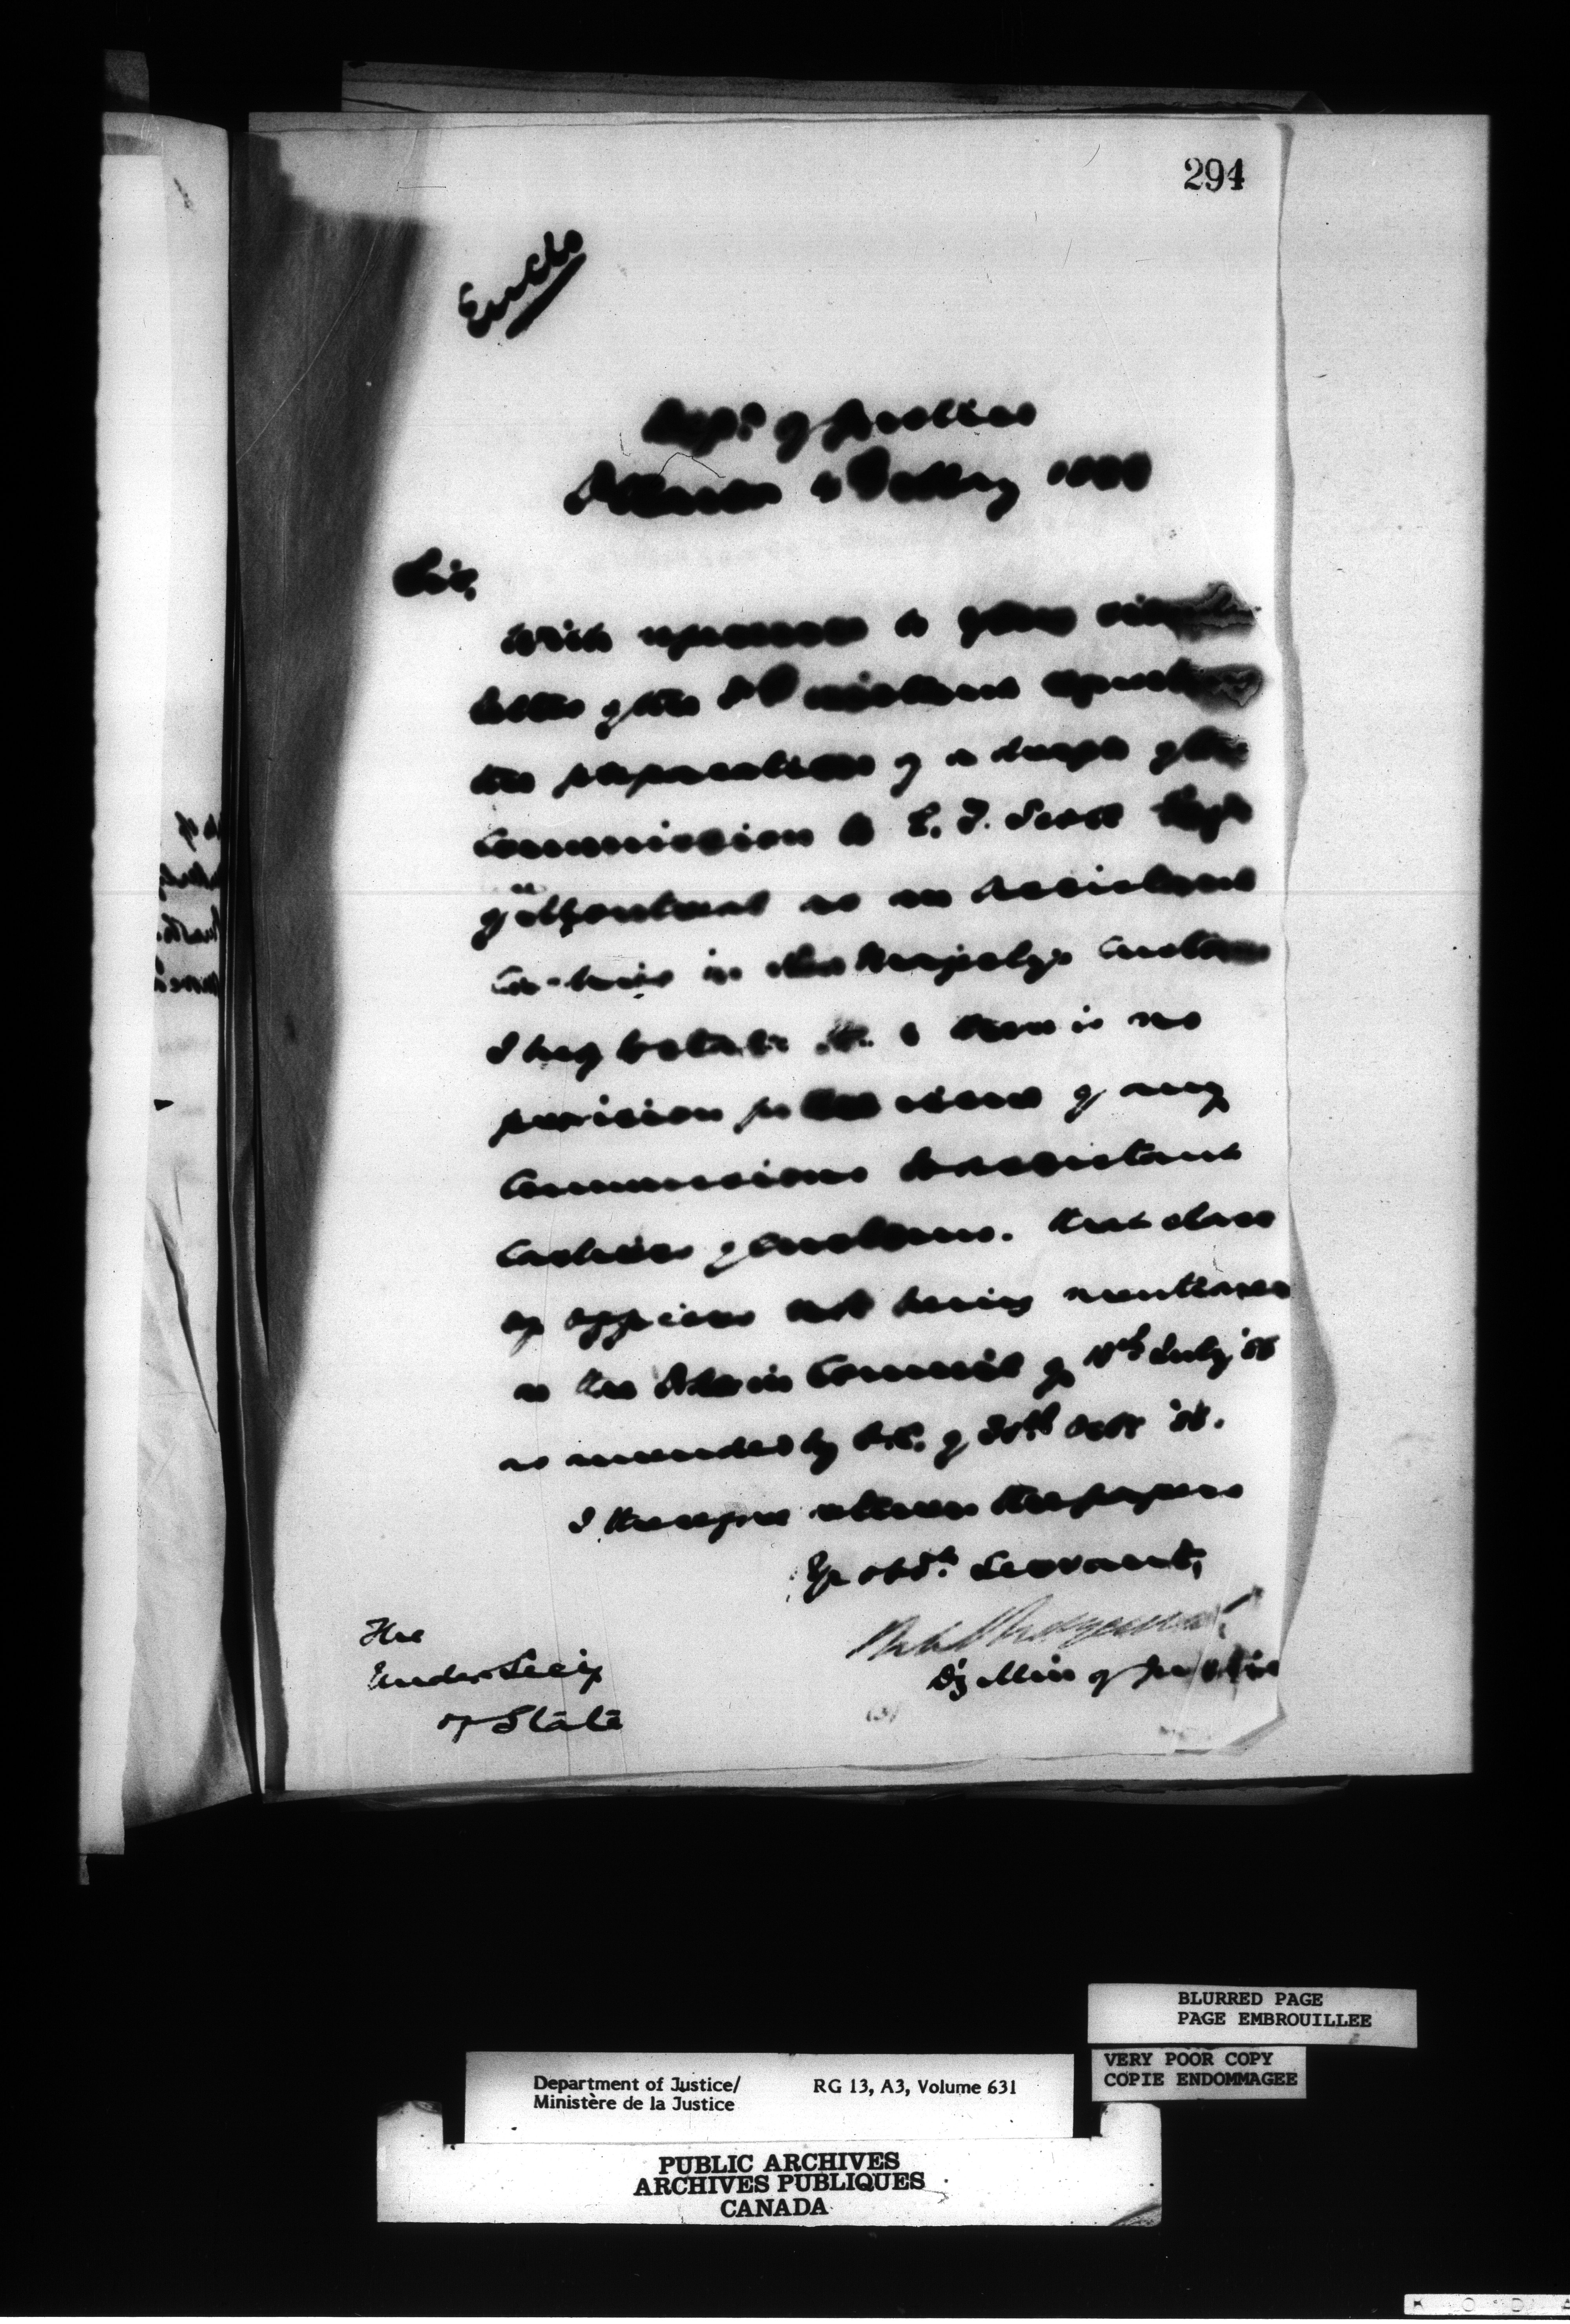 294
Encls
Dept. of Justice
Ottawa May 1888
Sir,
With reference to your
letter of the instant requesting
the preparation of a draft of the
Commission to E. F. Scott Esq
of Montreal as an Assistant
Cashier in Her Majesty's Customs
I beg to state that there is no
provision for the issue of any
Commissions to assistant
Cashiers of Customs. that class
of officers not being mentioned
in the Order in Council of July '86
as amended by O.C. of 30th Sept '86.
I therefore return the papers
Yr obdt. Servant,
Dy Min of Justice
The
Under Secy
of State
BLURRED PAGE
PAGE EMBROUILLEE
VERY POOR COPY
COPIE ENDOMMAGEE
Department of Justice/ RG 13, A3, Volume 631
Ministère de la Justice
PUBLIC ARCHIVES
ARCHIVES PUBLIQUES
CANADA
K O D A